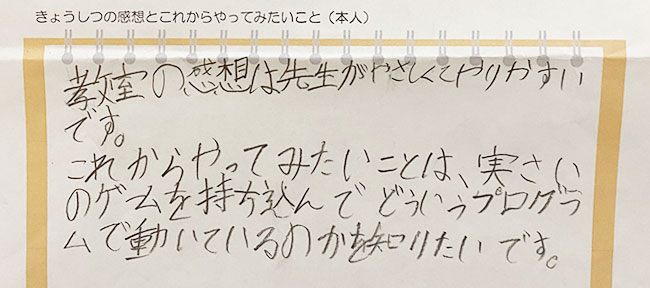 きょうしつの感想とこれからやってみたいこと（本人）
教室の感想は先生がやさしくてやりやすい
です。
これからやってみたいことは、実さい
のゲームを持ち込んでどういうプログラ
ムで動いているのかを知りたいです。